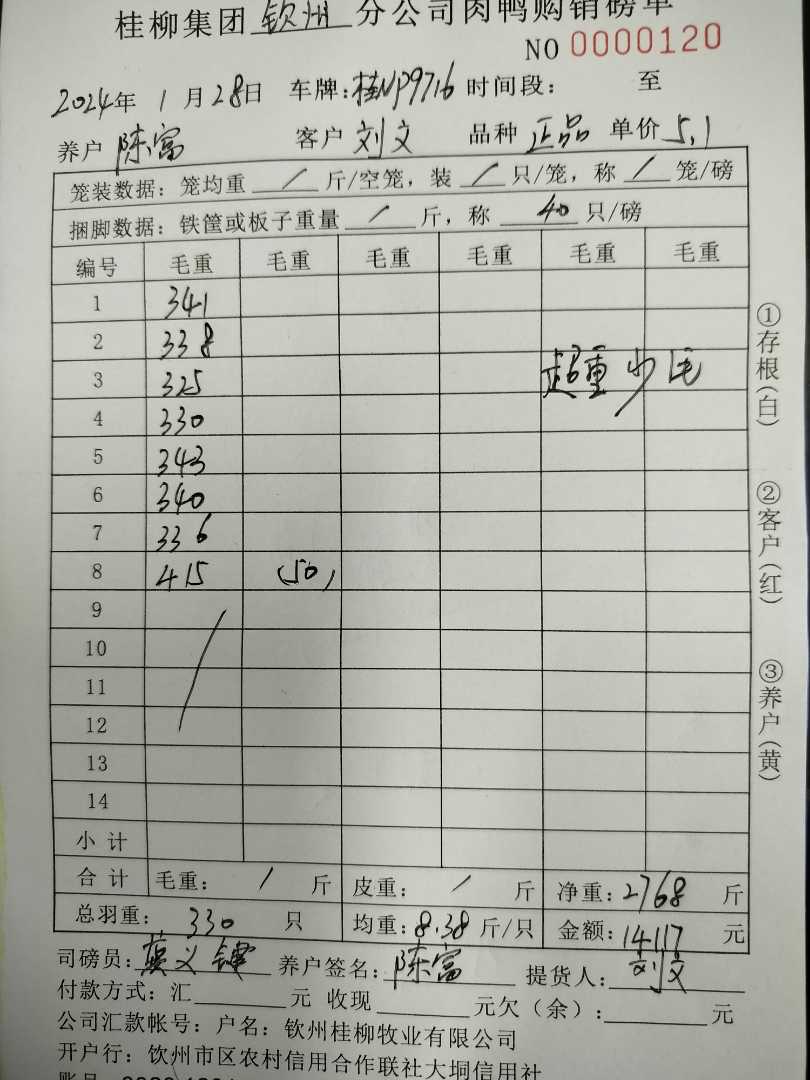 桂柳集团 钦州 分公司肉鸭购销磅单
NO 0000120
2024年 1月28日 车牌:桂NP9716 时间段: 至
养户 陈富 客户 刘文 品种 正品 单价 5.1
笼装数据:笼均重 / 斤/空笼,装 / 只/笼,称 / 笼/磅
捆脚数据:铁筐或板子重量 / 斤,称 40 只/磅
编号 毛重 毛重 毛重 毛重 毛重 毛重
1 341
2 338
3 325 超重少毛
4 330
5 343
6 340
7 336
8 415 (50)
9
10
11
12
13
14
小计
合计 毛重: / 斤 皮重: / 斤 净重:2768 斤
总羽重: 330 只 均重:8.38 斤/只 金额:14117 元
司磅员: 义 养户签名:陈富 提货人:刘文
付款方式:汇 元 收现 元欠(余): 元
公司汇款帐号:户名:钦州桂柳牧业有限公司
开户行:钦州市区农村信用合作联社大垌信用社
①存根(白)
②客户(红)
③养户(黄)